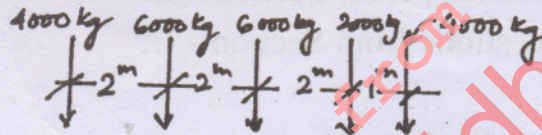 4000 kg 6000 kg 6000 kg 2000 kg 4000 kg
2m 2m 2m 1m
from